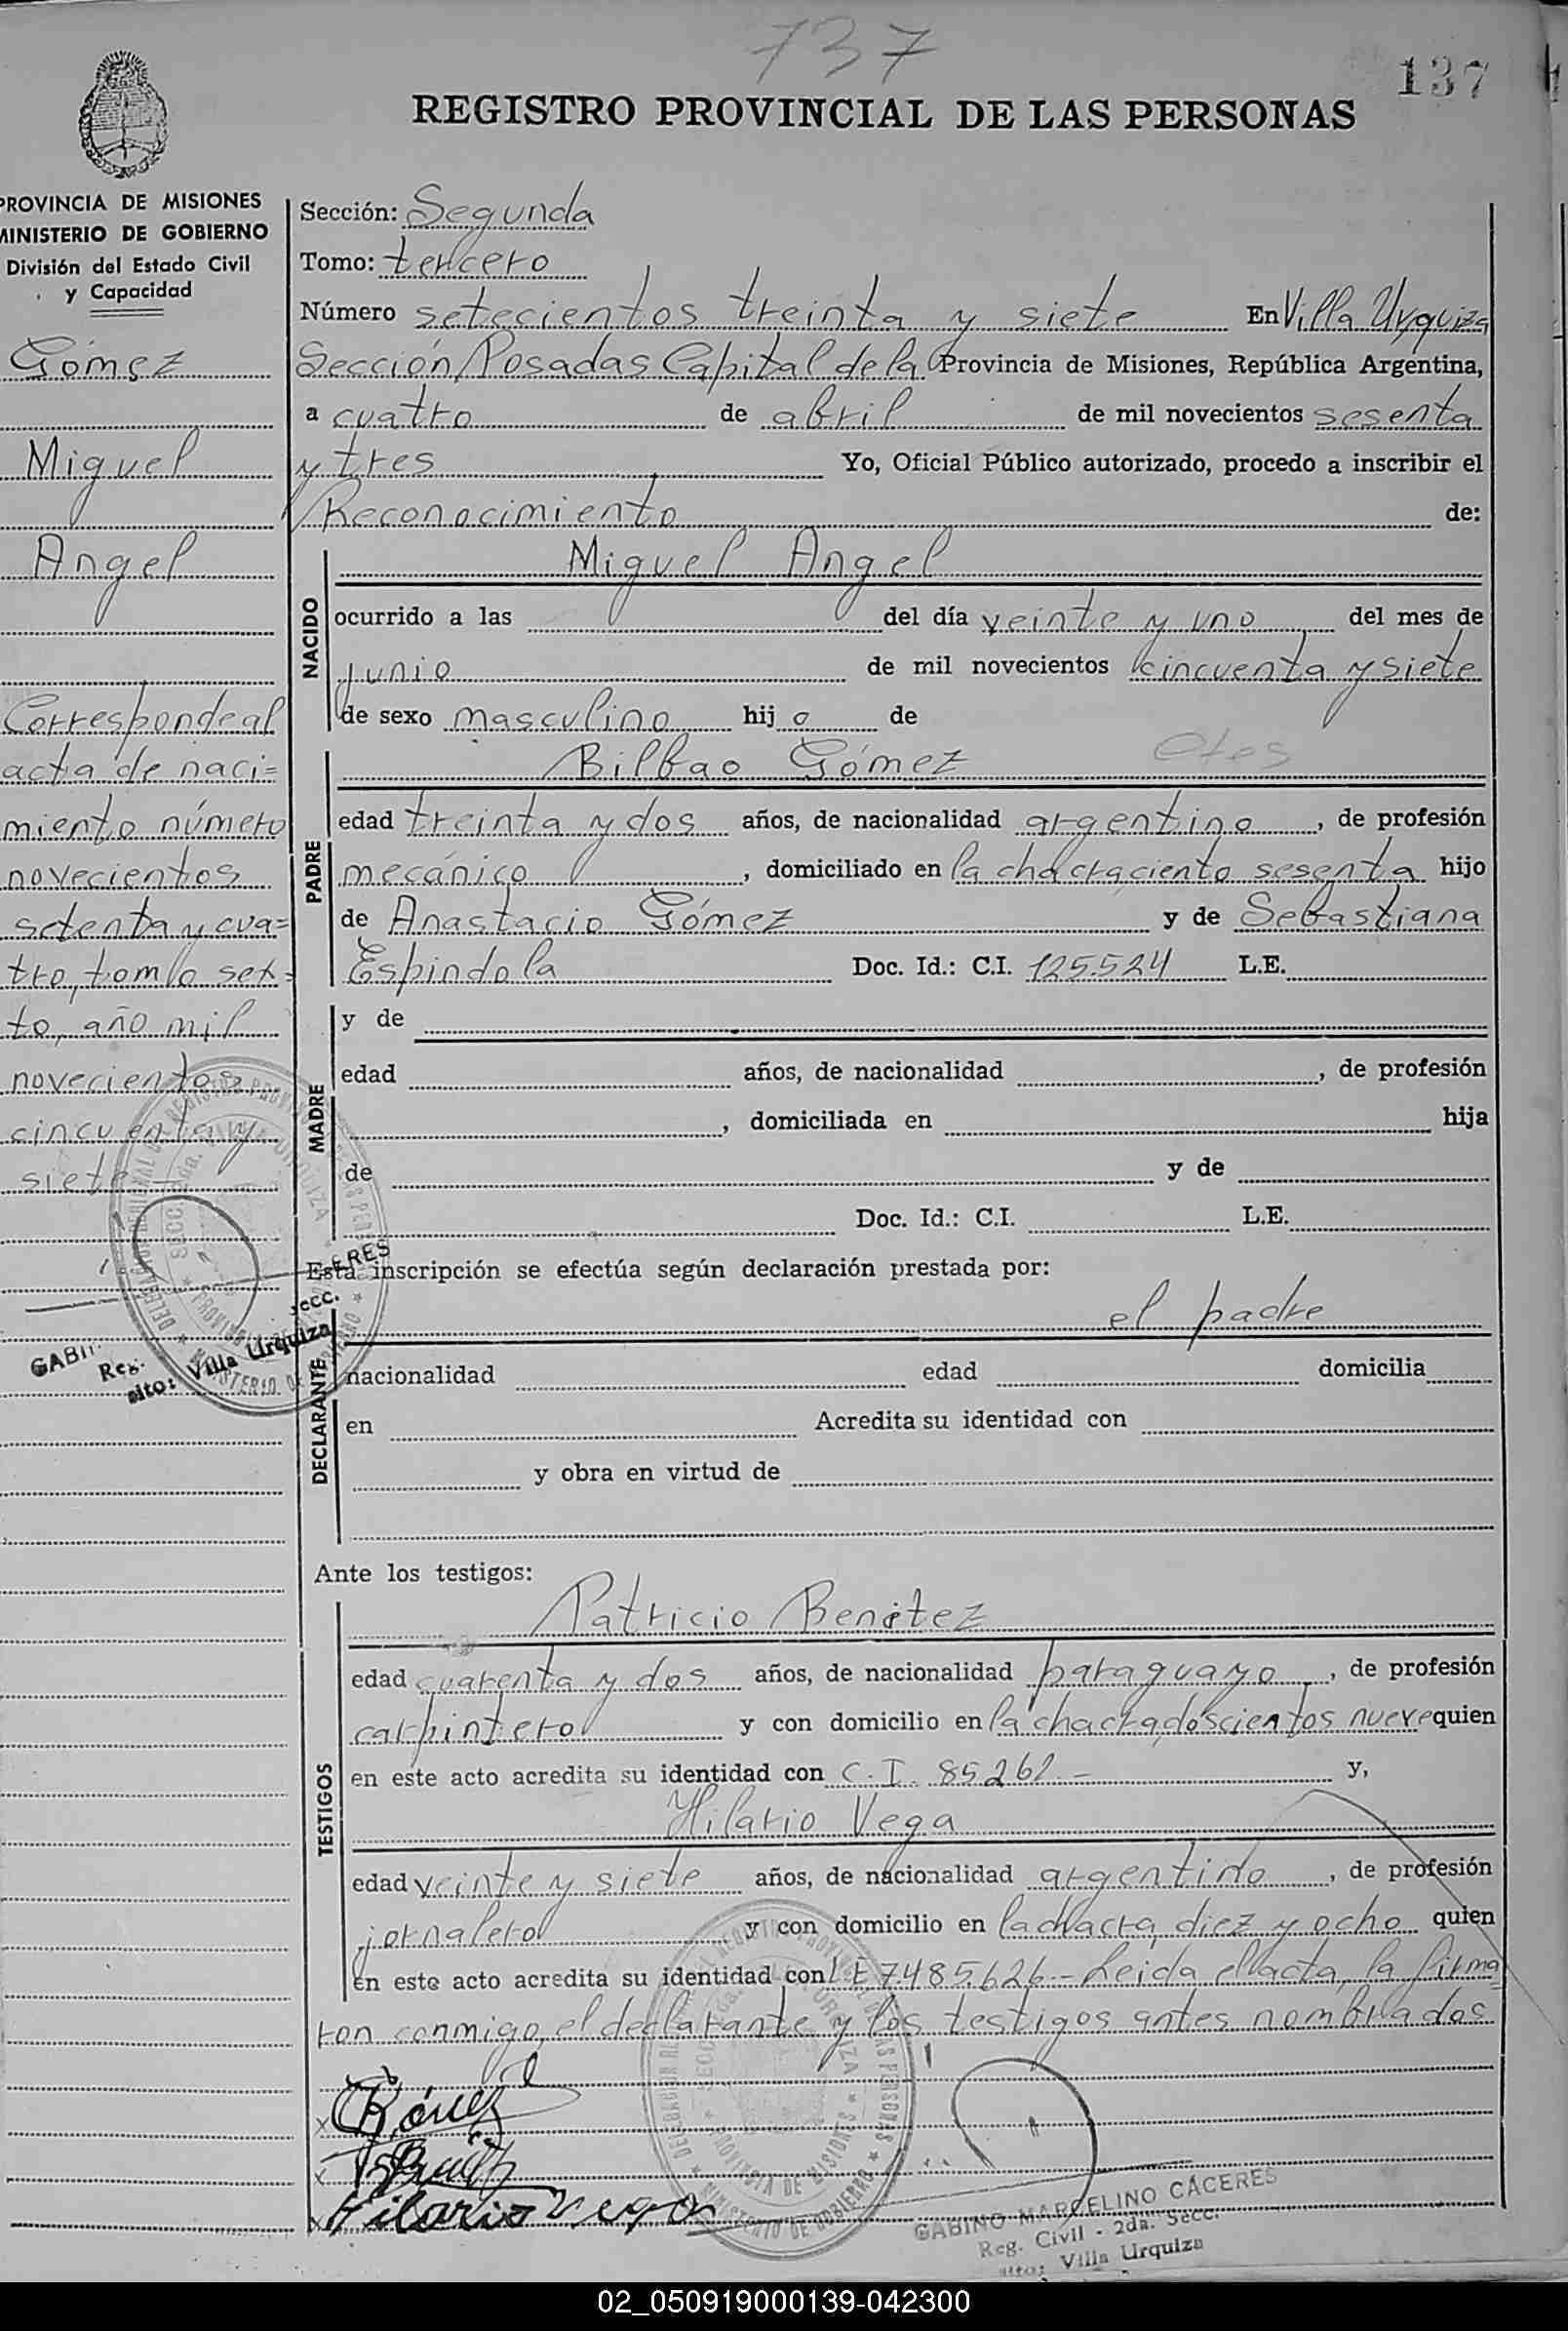 737
137
REGISTRO PROVINCIAL DE LAS PERSONAS
PROVINCIA DE MISIONES
MINISTERIO DE GOBIERNO
División del Estado Civil
y Capacidad
Gómez
Miguel
Angel
Corresponde al
acta de naci=
miento número
novecientos
setenta y cua=
tro, tomo sex=
to, año mil
novecientos
cincuenta y
siete
Villa Urquiza
Sección: Segunda
Tomo: tercero
Número setecientos treinta y siete En Villa Urquiza
Sección Posadas Capital de la Provincia de Misiones, República Argentina,
a cuatro de abril de mil novecientos sesenta
y tres Yo, Oficial Público autorizado, procedo a inscribir el
Reconocimiento de:
NACIDO
Miguel Angel
ocurrido a las del día veinte y uno del mes de
junio de mil novecientos cincuenta y siete
de sexo masculino hijo de
PADRE
Bilbao Gómez
edad treinta y dos años, de nacionalidad argentino, de profesión
mecánico, domiciliado en la chacra ciento sesenta hijo
de Anastacio Gómez y de Sebastiana
Espindola Doc. Id.: C.I. 125.524 L.E.
MADRE
y de
edad años, de nacionalidad , de profesión
, domiciliada en hija
de y de
Doc. Id.: C.I. L.E.
Esta inscripción se efectúa según declaración prestada por:
DECLARANTE
el padre
nacionalidad edad domicilia
en Acredita su identidad con
y obra en virtud de
Ante los testigos:
TESTIGOS
Patricio Benitez
edad cuarenta y dos años, de nacionalidad paraguayo, de profesión
carpintero y con domicilio en la chacra doscientos nueve quien
en este acto acredita su identidad con C.I. 85.262.- y,
Hilario Vega
edad veinte y siete años, de nacionalidad argentino, de profesión
jornalero y con domicilio en la chacra diez y ocho quien
en este acto acredita su identidad con L.E 7.485.626.- Leida el acta, la firma
ron conmigo, el declarante y los testigos antes nombrados
Hilario Vega
GABINO MARCELINO CACERES
Reg. Civil - 2da. Secc.
Villa Urquiza
02_050919000139-042300